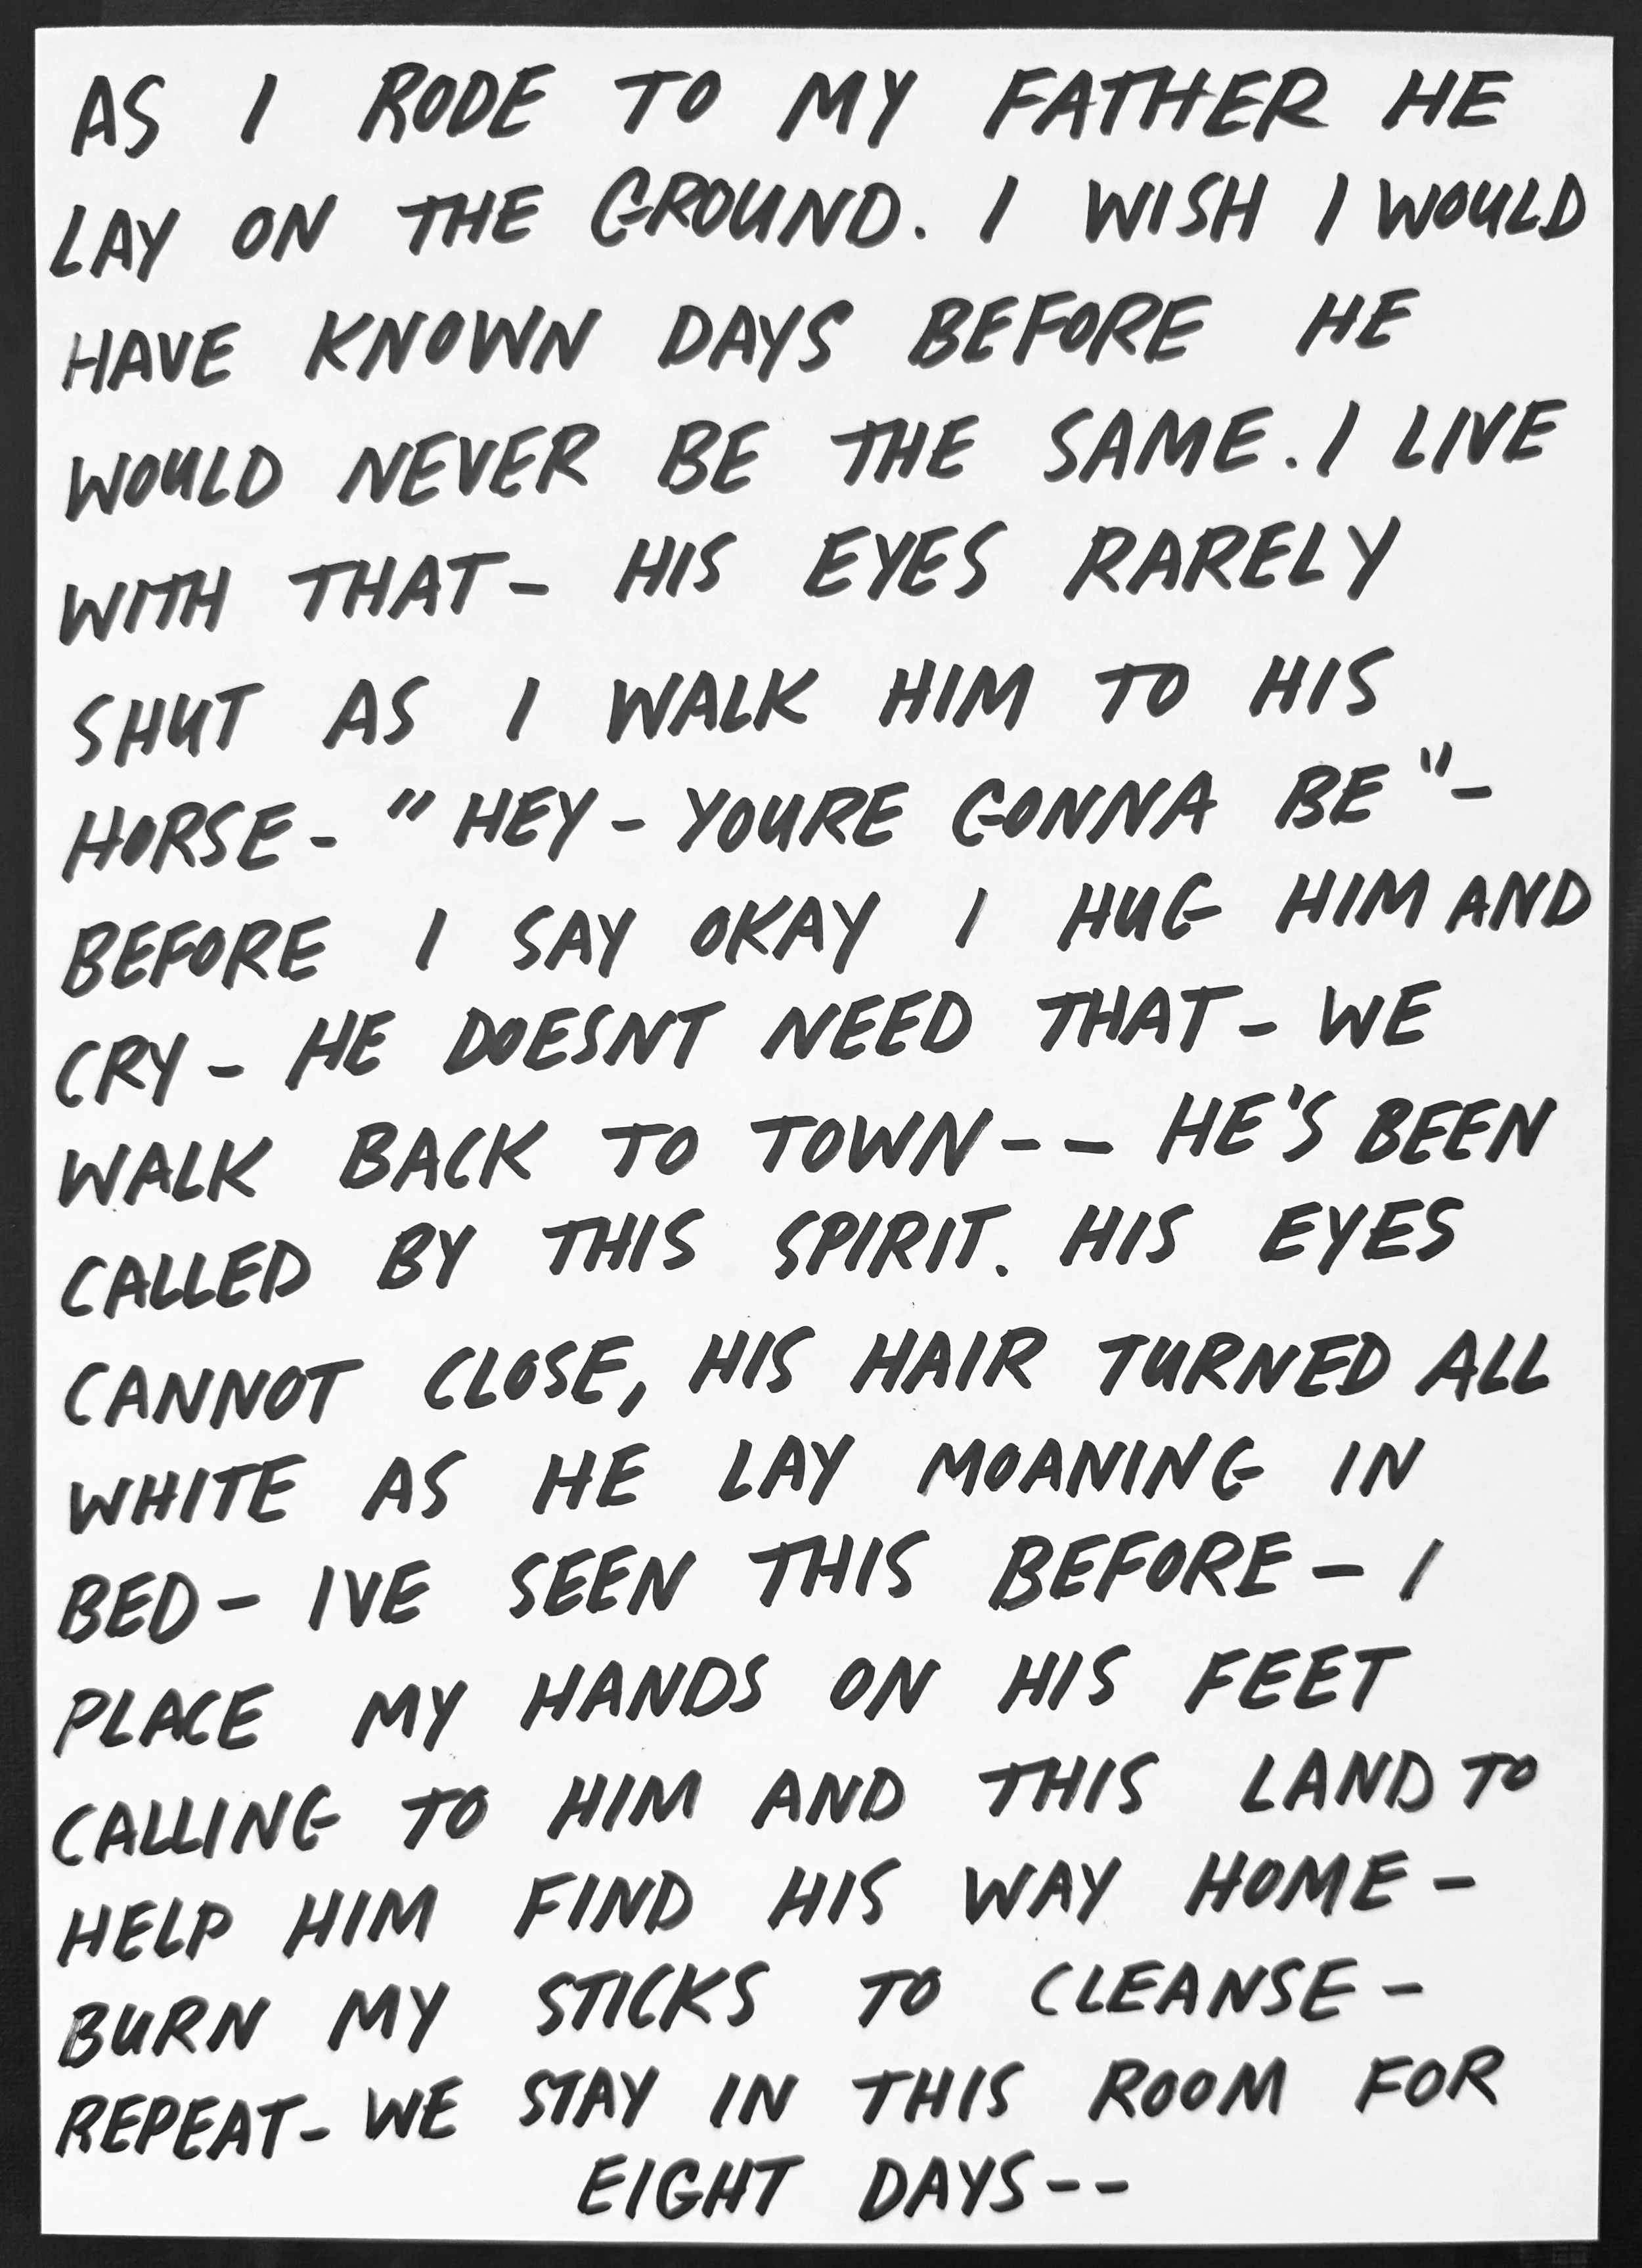 AS I RODE TO MY FATHER HE
LAY ON THE GROUND. I WISH I WOULD
HAVE KNOWN DAYS BEFORE HE
WOULD NEVER BE THE SAME. I LIVE
WITH THAT- HIS EYES RARELY
SHUT AS I WALK HIM TO HIS
HORSE- "HEY- YOURE GONNA BE"-
BEFORE I SAY OKAY I HUG HIM AND
CRY- HE DOESNT NEED THAT- WE
WALK BACK TO TOWN-- HE'S BEEN
CALLED BY THIS SPIRIT. HIS EYES
CANNOT CLOSE, HIS HAIR TURNED ALL
WHITE AS HE LAY MOANING IN
BED- IVE SEEN THIS BEFORE- I
PLACE MY HANDS ON HIS FEET
CALLING TO HIM AND THIS LAND TO
HELP HIM FIND HIS WAY HOME-
BURN MY STICKS TO CLEANSE-
REPEAT- WE STAY IN THIS ROOM FOR
EIGHT DAYS--